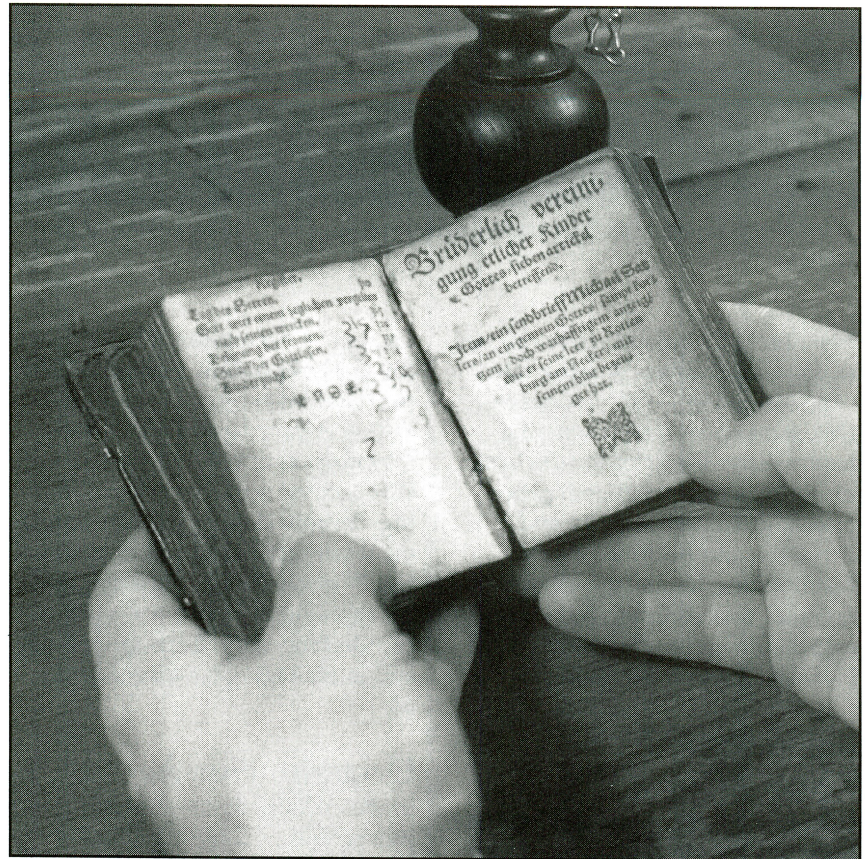 Register.
Tag des Herren.
Gott wirt einem jeglichen vergelten
nach seinen wercken.
Belonung der frommen.
Straff der Gottlosen.
Kinderzucht.
E N D E.
Brüderlich vereini⸗
gung etlicher Kinder
Gottes / siben artickel
betreffend.
Item / ein sendbrieff Michael Sat
lers / an ein gemein Gottes / sampt kurtz
em / doch warhafftigem anzeig /
wie er seine leer zu Rotten
burg am Necker / mit
seinem blut bezeu
get hat.